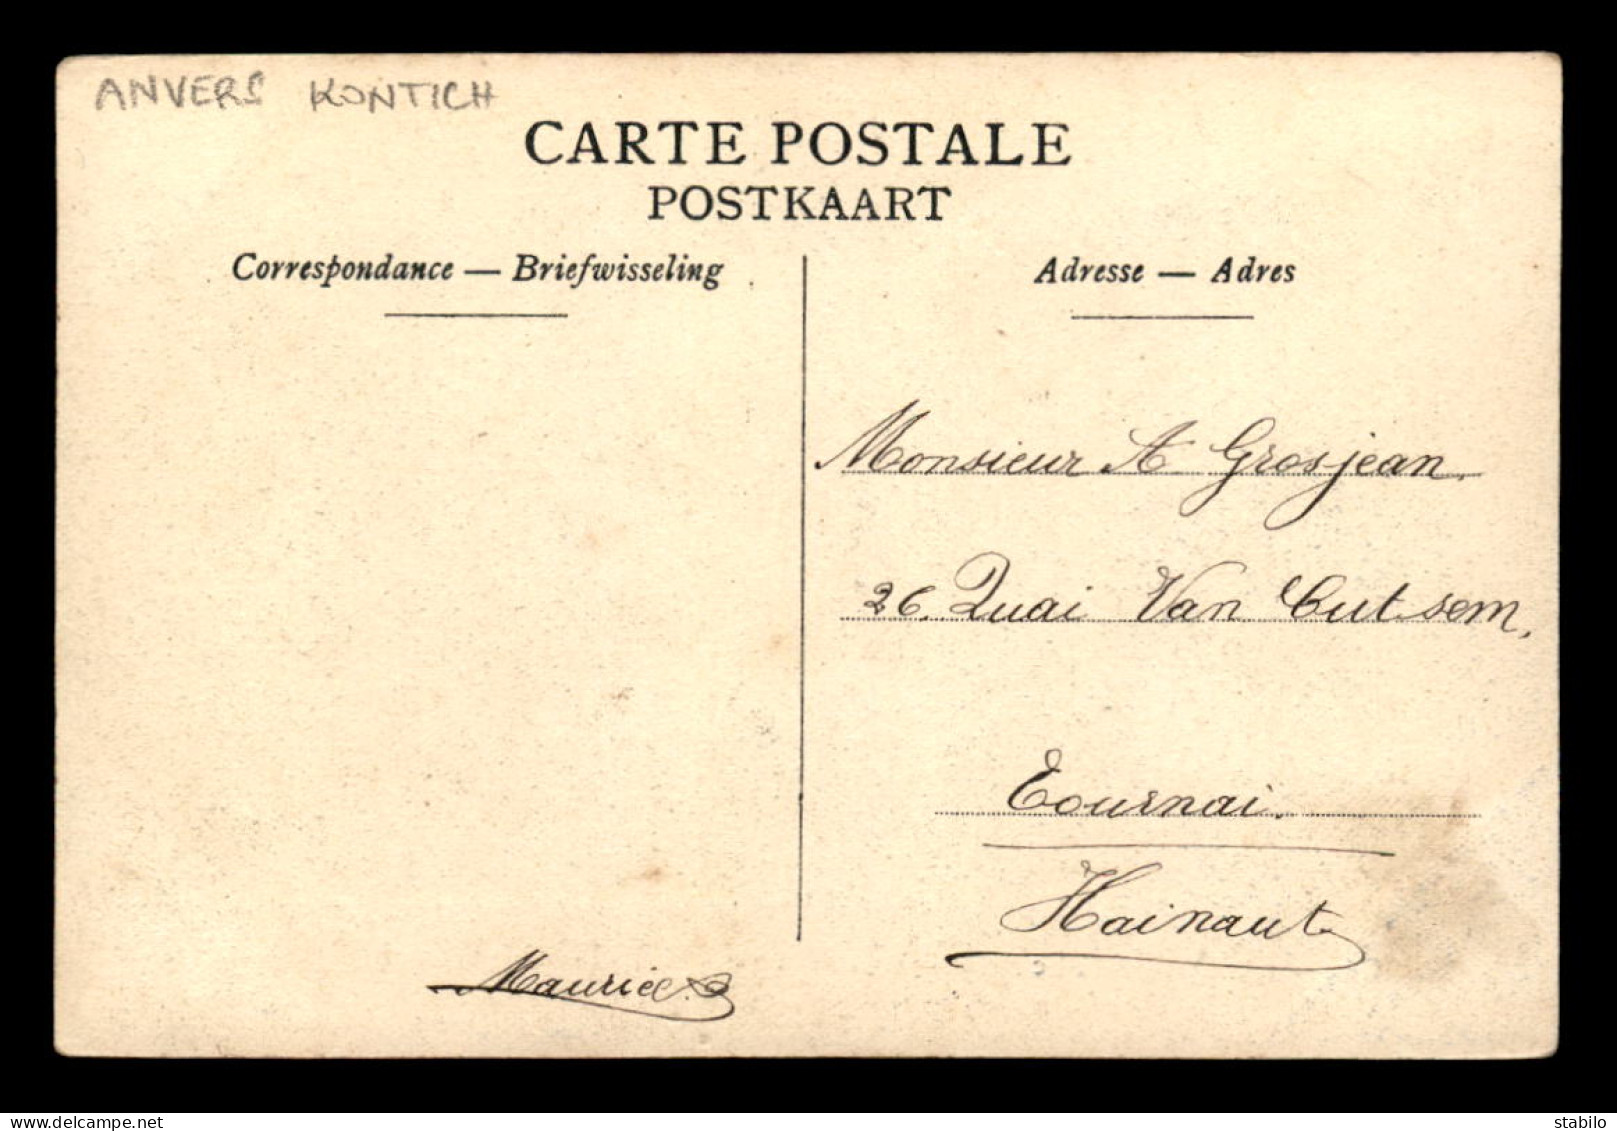 ANVERS KONTICH
CARTE POSTALE
POSTKAART
Correspondance — Briefwisseling
Adresse — Adres
Monsieur A Grosjean.
26. Quai Van Cutsem,
Tournai.
Hainaut
Maurice.
www.delcampe.net
stabilo